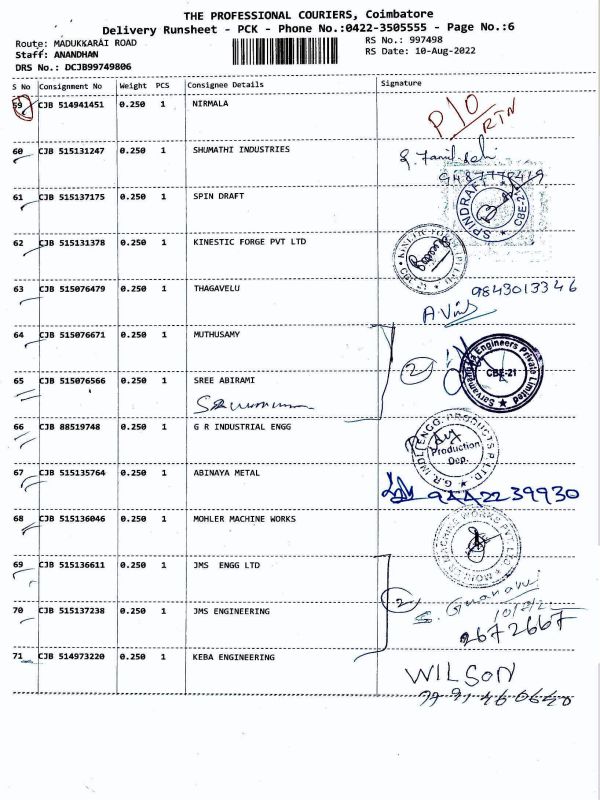 THE PROFESSIONAL COURIERS, Coimbatore
Delivery Runsheet - PCK - Phone No.:0422-3505555 - Page No.:6
Route: MADUKKARAI ROAD
RS No.: 997498
Staff: ANANDHAN
RS Date: 10-Aug-2022
DRS No.: DCJB99749806
S No Consignment No Weight PCS Consignee Details Signature
59 CJB 514941451 0.250 1 NIRMALA P/O RTN
60 CJB 515131247 0.250 1 SHUMATHI INDUSTRIES
61 CJB 515137175 0.250 1 SPIN DRAFT SPINDRAFT CBE-21
62 CJB 515131378 0.250 1 KINESTIC FORGE PVT LTD
63 CJB 515076479 0.250 1 THAGAVELU 9843013346
64 CJB 515076671 0.250 1 MUTHUSAMY
2 Engineers Private Limited CBE-21
65 CJB 515076566 0.250 1 SREE ABIRAMI
66 CJB 88519748 0.250 1 G R INDUSTRIAL ENGG G.R. INDL ENGG. PRODUCTS P LTD. Production Dep.
67 CJB 515135764 0.250 1 ABINAYA METAL 9442239930
68 CJB 515136046 0.250 1 MOHLER MACHINE WORKS MOHLER MACHINE WORKS PVT. LTD
69 CJB 515136611 0.250 1 JMS ENGG LTD
2
70 CJB 515137238 0.250 1 JMS ENGINEERING 2672667
71 CJB 514973220 0.250 1 KEBA ENGINEERING WILSON